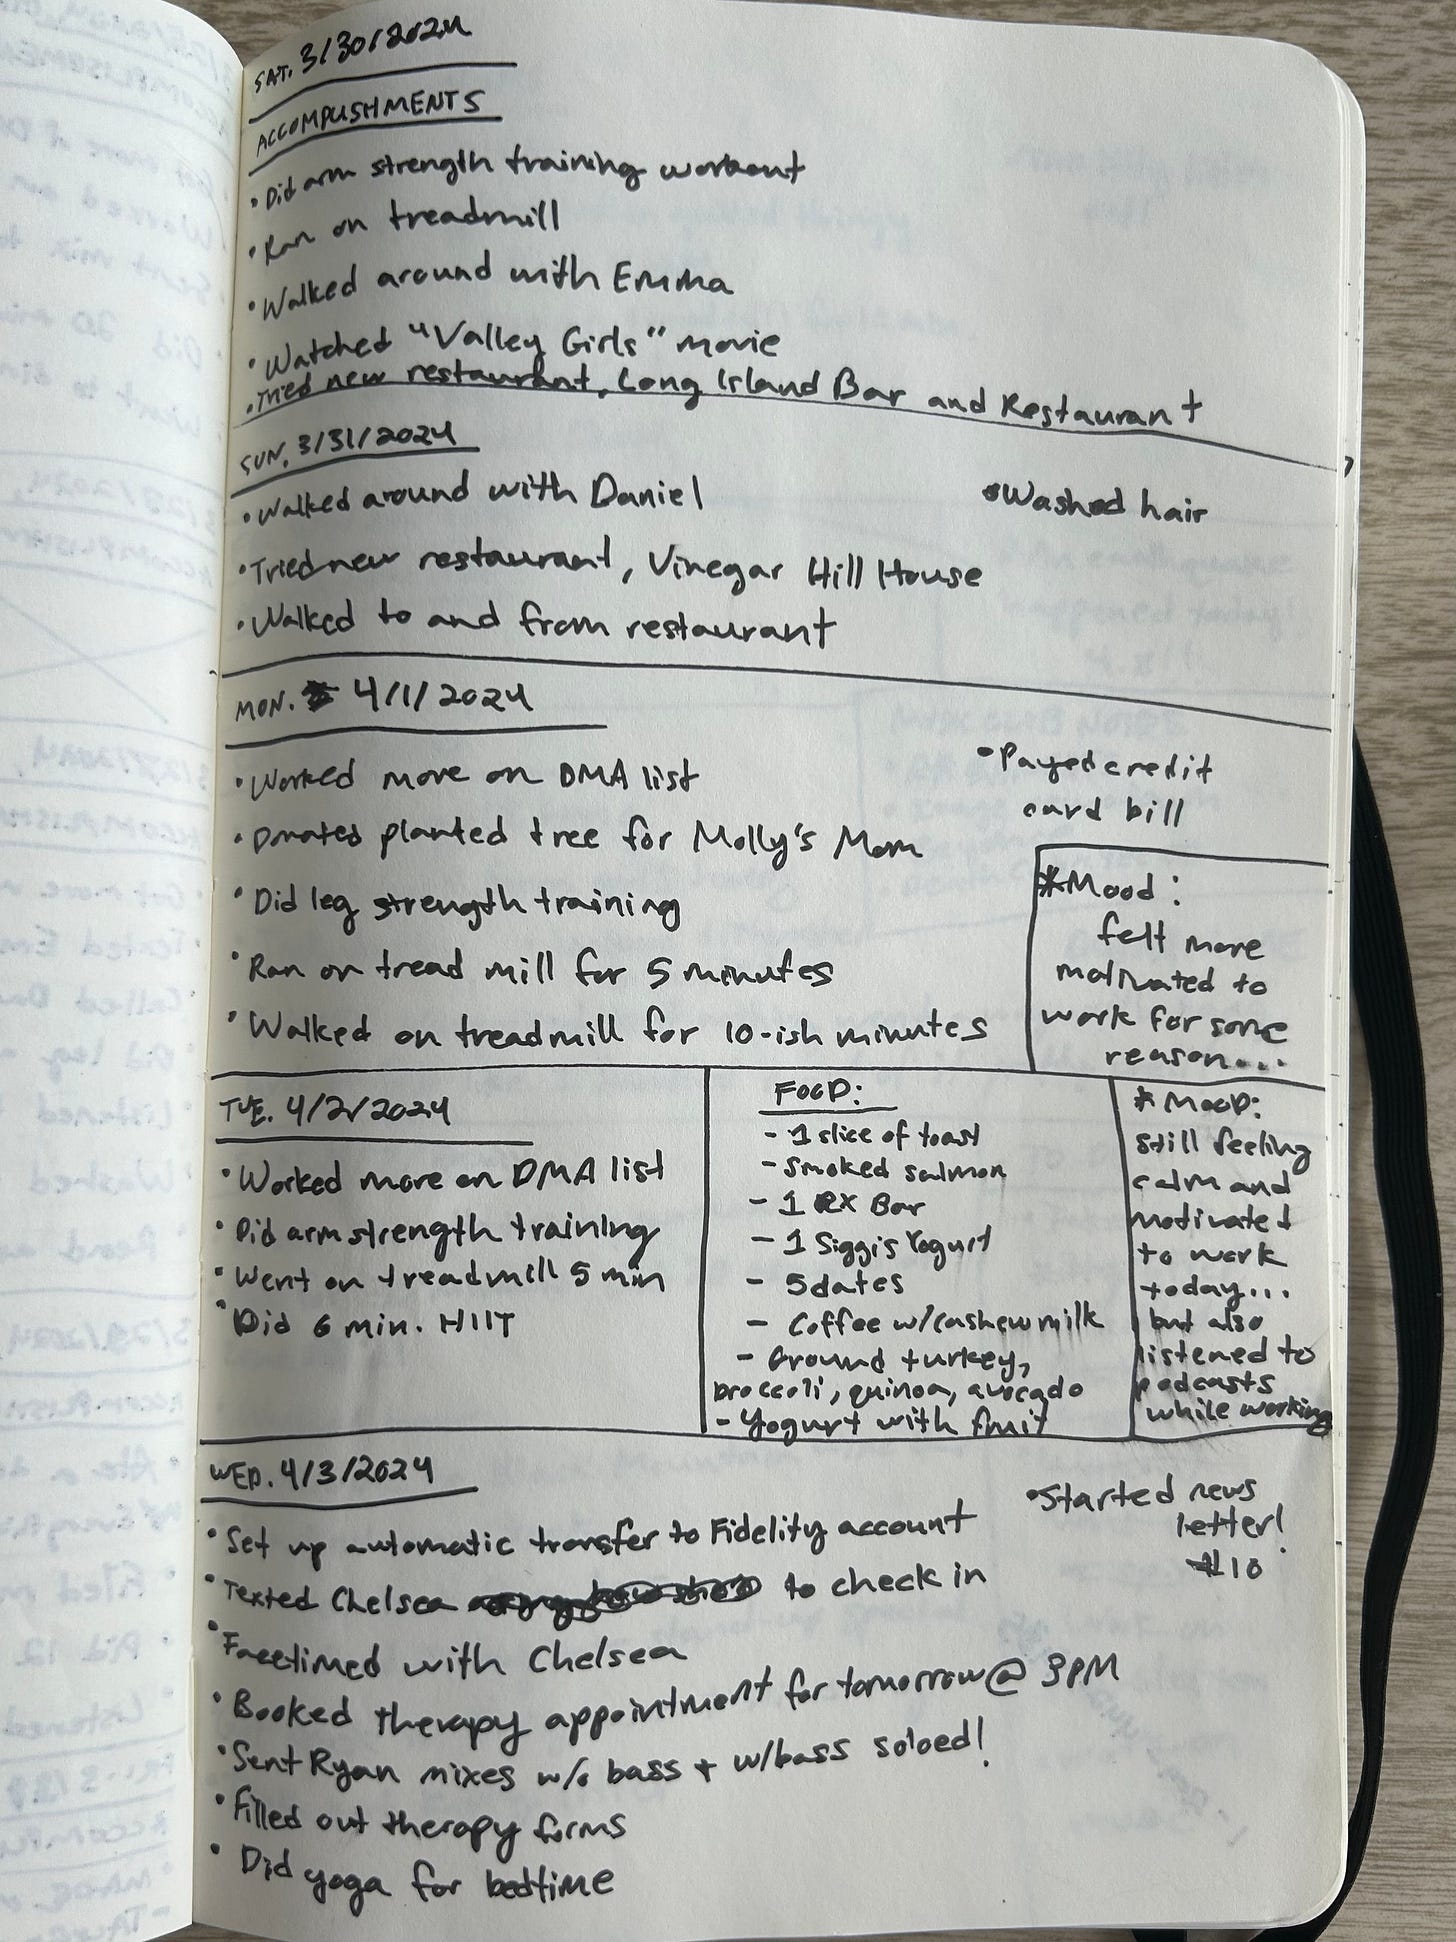 SAT. 3/30/2024
ACCOMPLISHMENTS
• Did arm strength training workout
• Ran on treadmill
• Walked around with Emma
• Watched "Valley Girls" movie
• Tried new restaurant, Long Island Bar and Restaurant
SUN. 3/31/2024
• Walked around with Daniel
• Tried new restaurant, Vinegar Hill House
• Walked to and from restaurant
• Washed hair
MON. 4/1/2024
• Worked more on DMA list
• Donated planted tree for Molly's Mom
• Did leg strength training
• Ran on tread mill for 5 minutes
• Walked on treadmill for 10-ish minutes
• Payed credit
card bill
*Mood:
felt more
motivated to
work for some
reason...
TUE. 4/2/2024
• Worked more on DMA list
• Did arm strength training
• Went on treadmill 5 min
• Did 6 min. HIIT
FOOD:
- 1 slice of toast
- Smoked salmon
- 1 RX Bar
- 1 Siggi's Yogurt
- 5 dates
- Coffee w/cashew milk
- Ground turkey,
broccoli, quinoa, avocado
- Yogurt with fruit
* MOOD:
still feeling
calm and
motivated
to work
today...
but also
listened to
podcasts
while working
WED. 4/3/2024
• Set up automatic transfer to Fidelity account
• Texted Chelsea to check in
• Facetimed with Chelsea
• Booked therapy appointment for tomorrow @ 3PM
• Sent Ryan mixes w/o bass + w/bass soloed!
• Filled out therapy forms
• Did yoga for bedtime
• Started news
letter!
#10